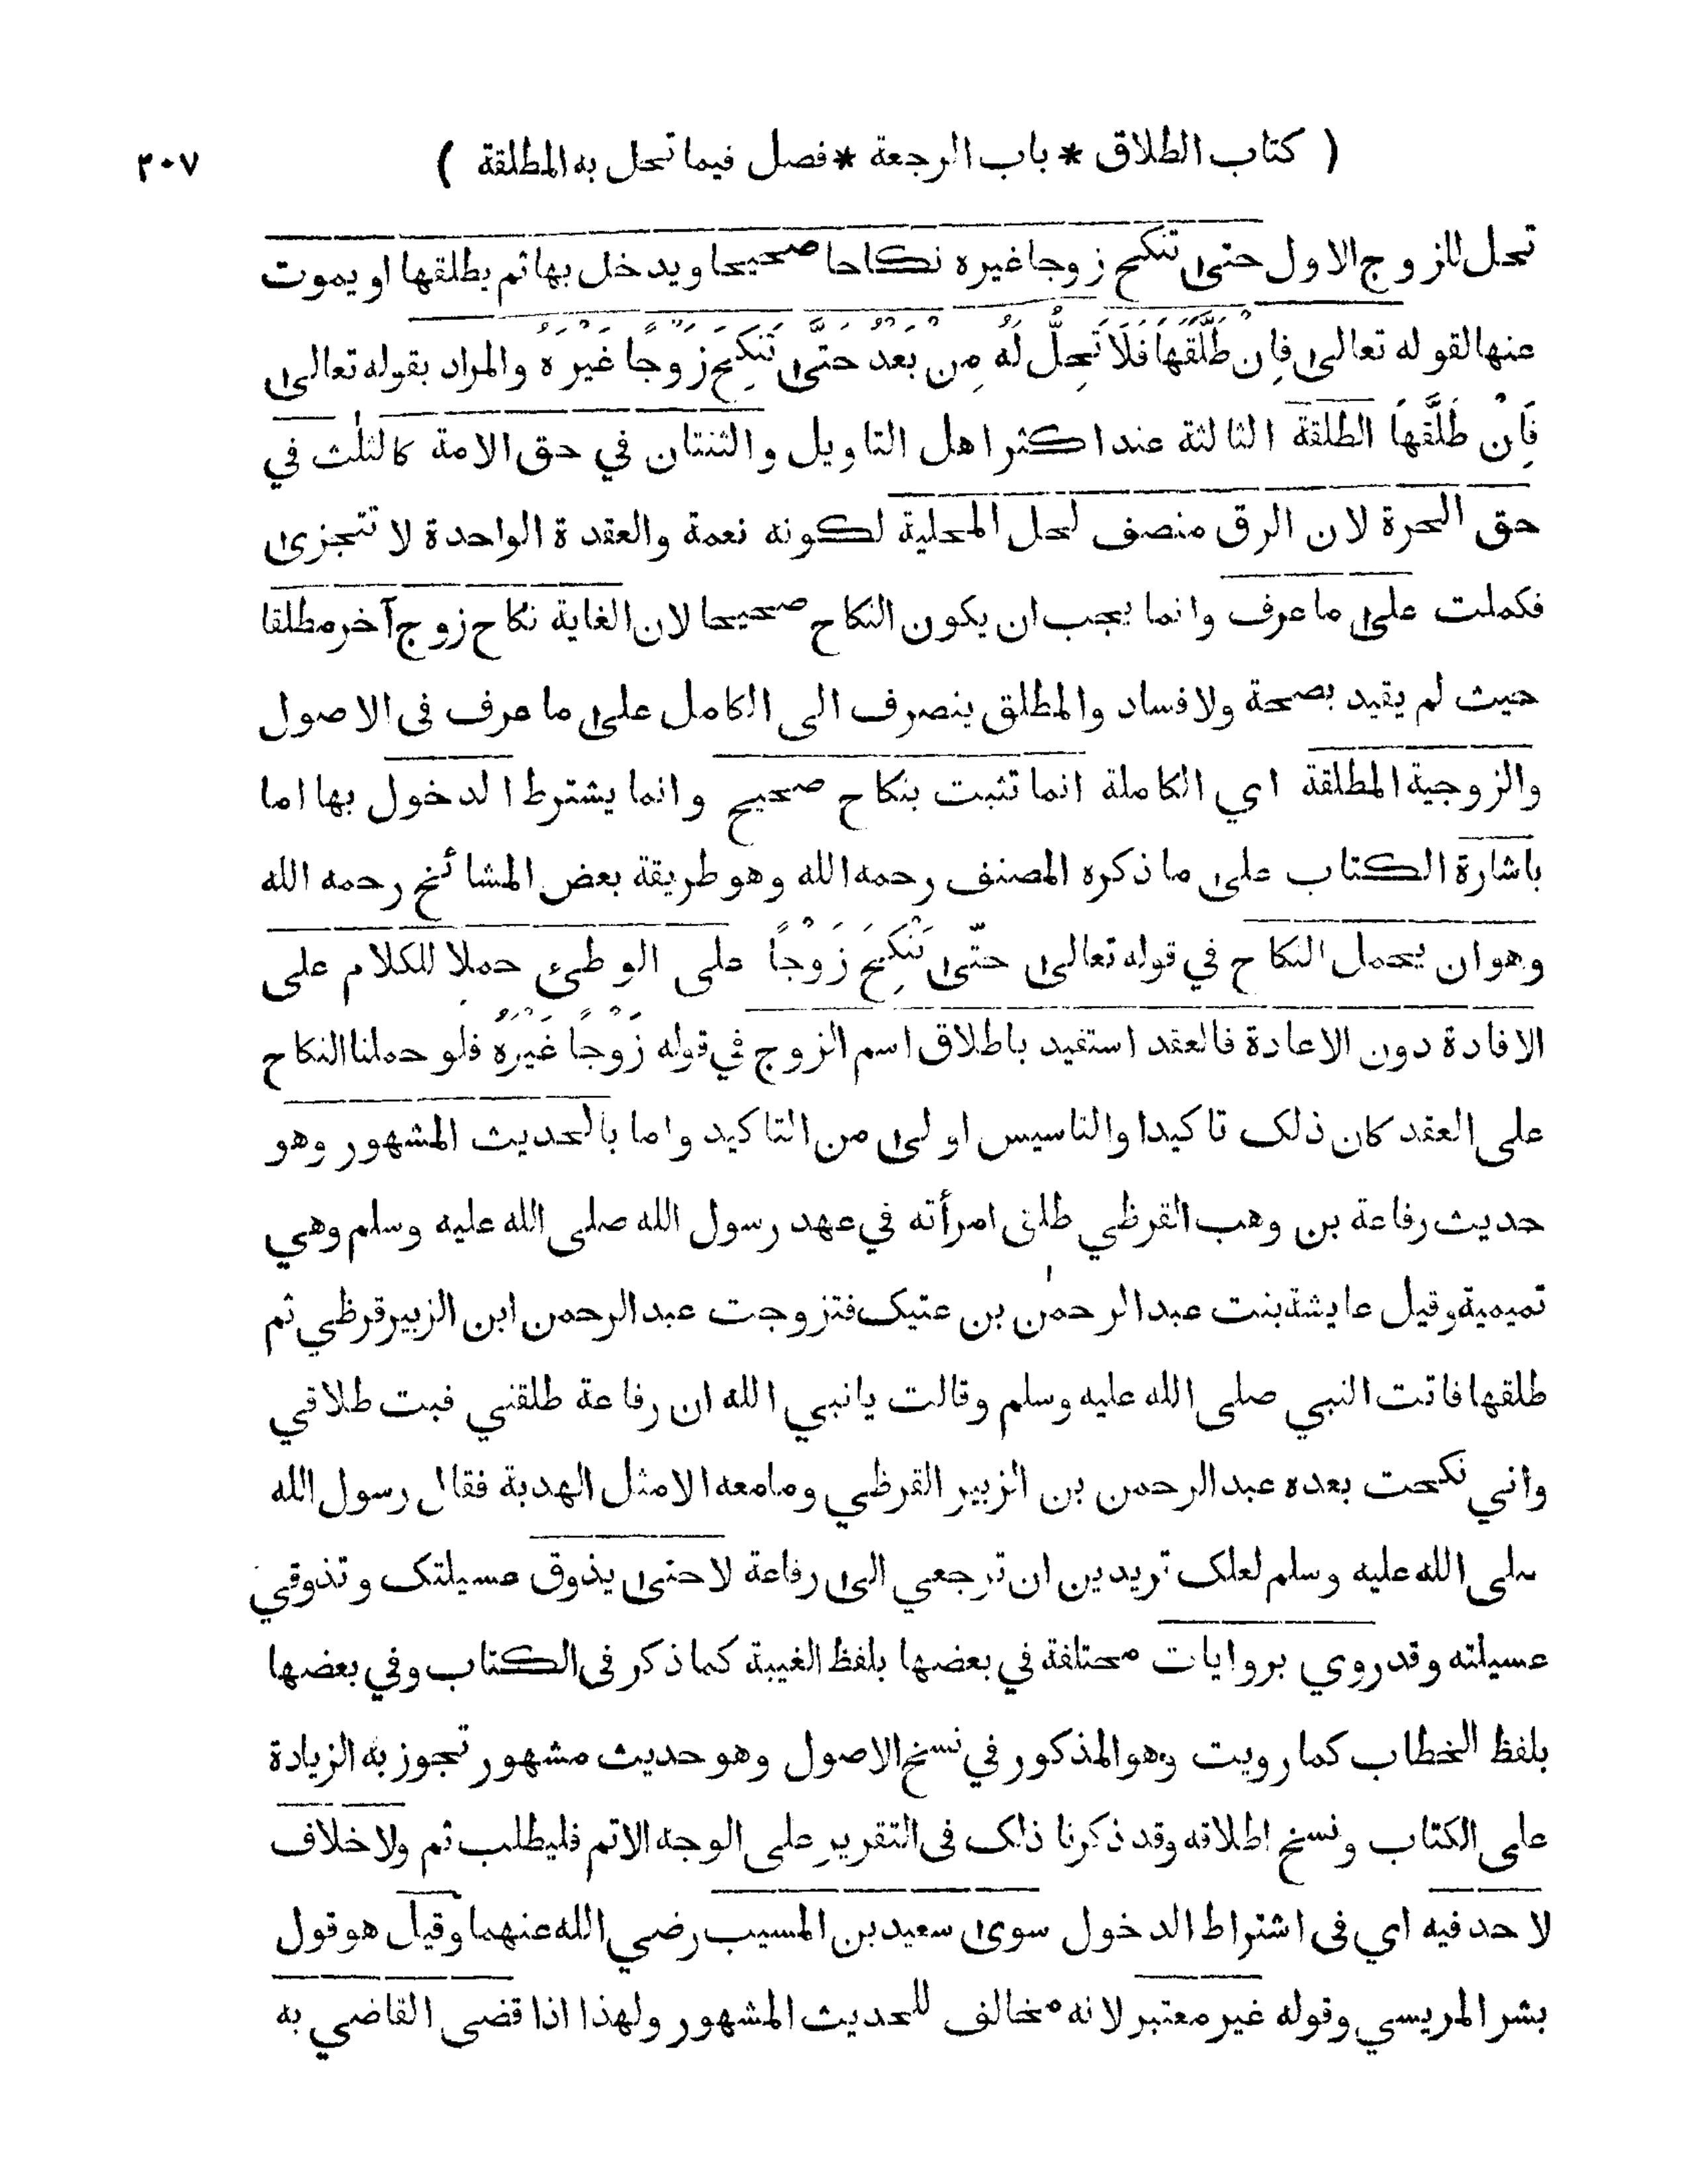 ( كتاب الطلاق * باب الرجعة * فصل فيما تحل به المطلقة ) ٣٠٧
تحل للزوج الاول حتى تنكح زوجا غيره نكاحا صحيحا ويدخل بها ثم يطلقها او يموت
عنها لقوله تعالى فَاِنْ طَلَّقَهَا فَلَا تَحِلُّ لَهُ مِنْ بَعْدُ حَتّٰى تَنْكِحَ زَوْجًا غَيْرَهُ والمراد بقوله تعالى
فَاِنْ طَلَّقَهَا الطلقة الثالثة عند اكثر اهل التاويل والثنتان في حق الامة كالثلٰث في
حق الحرة لان الرق منصف لحل المحلية لكونه نعمة والعقدة الواحدة لا تتجزى
فكملت على ما عرف وانما يجب ان يكون النكاح صحيحا لان الغاية نكاح زوج آخر مطلقا
حيث لم يقيد بصحة ولا فساد والمطلق ينصرف الى الكامل على ما عرف فى الاصول
والزوجية المطلقة اي الكاملة انما تثبت بنكاح صحيح وانما يشترط الدخول بها اما
باشارة الكتاب على ما ذكره المصنف رحمه الله وهو طريقة بعض المشائخ رحمه الله
وهو ان يحمل النكاح في قوله تعالى حَتّٰى تَنْكِحَ زَوْجًا على الوطئ حملا للكلام على
الافادة دون الاعادة فالعقد استفيد باطلاق اسم الزوج في قوله زَوْجًا غَيْرَهُ فلو حملنا النكاح
على العقد كان ذلك تاكيدا والتاسيس اولى من التاكيد واما بالحديث المشهور وهو
حديث رفاعة بن وهب القرظي طلق امرأته في عهد رسول الله صلى الله عليه وسلم وهي
تميمية وقيل عايشة بنت عبد الرحمٰن بن عتيك فتزوجت عبد الرحمن ابن الزبير قرظي ثم
طلقها فاتت النبي صلى الله عليه وسلم وقالت يا نبي الله ان رفاعة طلقني فبت طلاقي
واني نكحت بعده عبد الرحمن بن الزبير القرظي وما معه الا مثل الهدبة فقال رسول الله
صلى الله عليه وسلم لعلك تريدين ان ترجعي الى رفاعة لا حتى يذوق عسيلتك وتذوقي
عسيلته وقد روي بروايات مختلفة في بعضها بلفظ الغيبة كما ذكر فى الكتاب وفي بعضها
بلفظ الخطاب كما رويت وهو المذكور في نسخ الاصول وهو حديث مشهور تجوز به الزيادة
على الكتاب ونسخ اطلاقه وقد ذكرنا ذلك فى التقرير على الوجه الاتم فليطلب ثم ولا خلاف
لا حد فيه اي فى اشتراط الدخول سوى سعيد بن المسيب رضي الله عنهما وقيل هو قول
بشر المريسي وقوله غير معتبر لانه مخالف للحديث المشهور ولهذا اذا قضى القاضي به